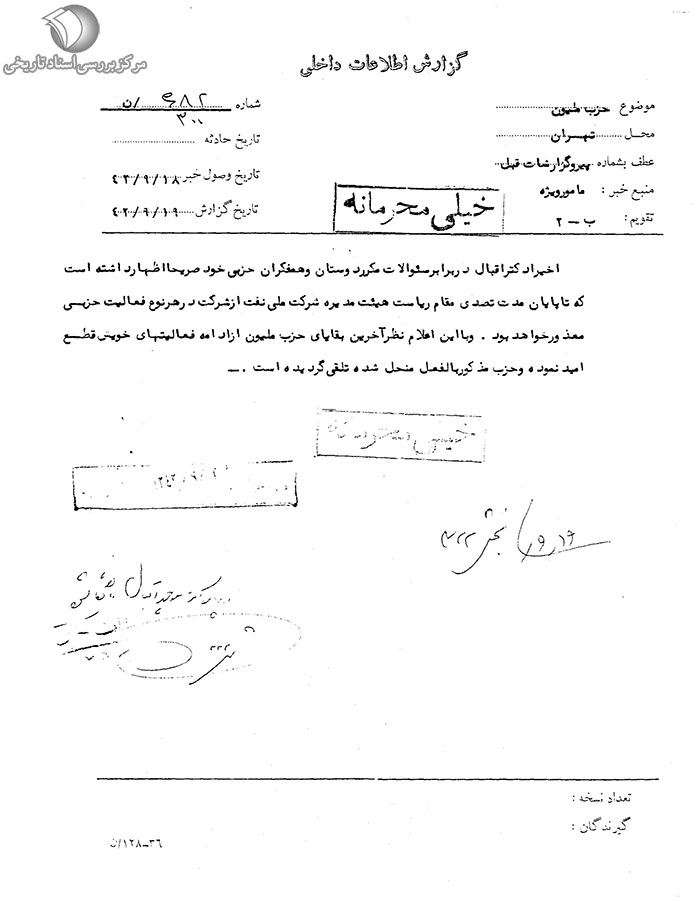 مرکز بررسی اسناد تاریخی
گزارش اطلاعات داخلی
موضوع حزب ملیون
محل تهران
عطف بشماره پیروگزارشات قبل
منبع خبر : مامورویژه
تقویم : ب - ۲
شماره ۶۸۲ /ن
۳۰۰
تاریخ حادثه
تاریخ وصول خبر ۴۳/۹/۱۸
تاریخ گزارش ۴۳/۹/۱۹
خیلی محرمانه
اخیرا دکتراقبال در برابر سئوالات مکرر دوستان وهمفکران حزبی خود صریحا اظهار داشته است
که تا پایان مدت تصدی مقام ریاست هیئت مدیره شرکت ملی نفت از شرکت در هرنوع فعالیت حزبی
معذور خواهد بود . وبا این اعلام نظر آخرین بقایای حزب ملیون از ادامه فعالیتهای خویش قطع
امید نموده وحزب مذکور بالفعل منحل شده تلقی گردیده است . ــ
خیلی محرمانه
بخش ۳۲۲
تعداد نسخه :
گیرندگان :
۳۶-۱۲۸/ن